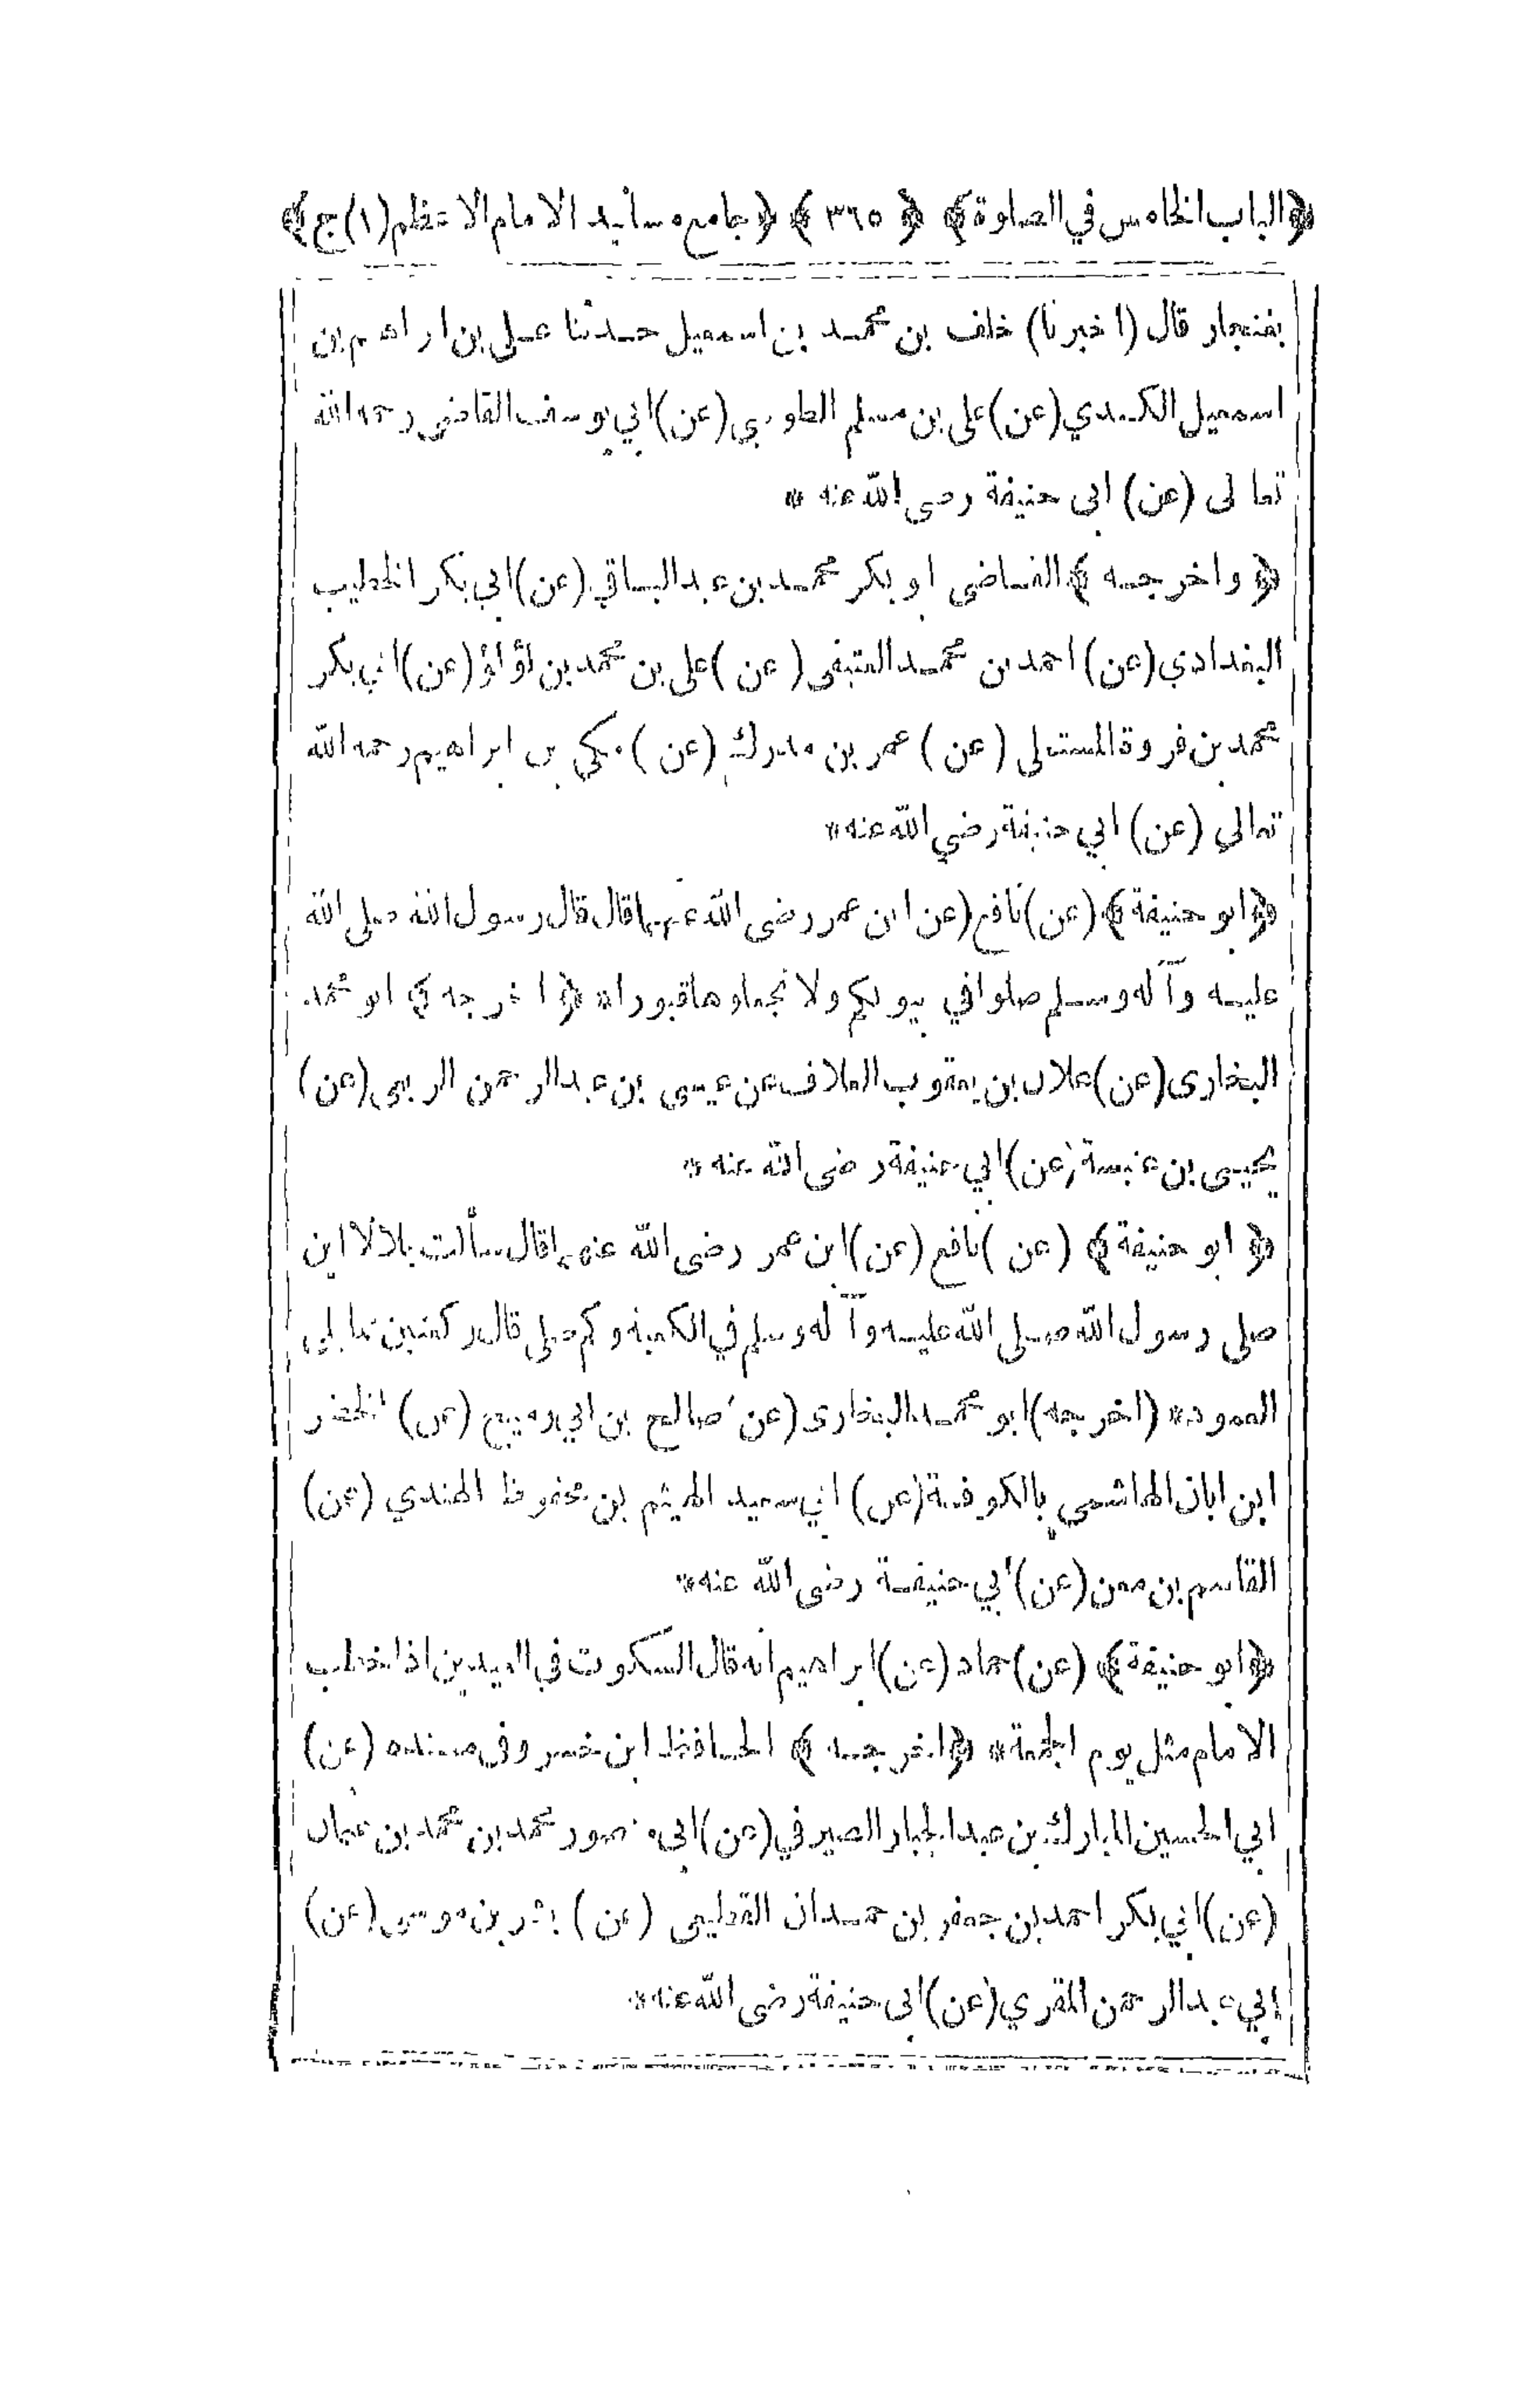 ﴿الباب الخامس في الصلوة﴾ ﴿٣٦٥﴾ ﴿جامع مسانيد الامام الاعظم (١) ج﴾
بغنجار قال (اخبرنا) خلف بن محمد بن اسمعيل حدثنا علي بن ابراهيم بن
اسمعيل الكندي (عن) علي بن مسلم الطوسي (عن) ابي يوسف القاضي رحمه الله
تعالى (عن) ابى حنيفة رضى الله عنه *
﴿واخرجه﴾ القاضى ابو بكر محمد بن عبد الباقي (عن) ابي بكر الخطيب
البغدادي (عن) احمد بن محمد العتيقى (عن) على بن محمد بن لؤلؤ (عن) ابي بكر
محمد بن فروة المستملى (عن) عمر بن مدرك (عن) مكي بن ابراهيم رحمه الله
تعالى (عن) ابي حنيفة رضي الله عنه *
﴿ابو حنيفة﴾ (عن) نافع (عن ابن عمر رضى الله عنهما قال قال رسول الله صلى الله
عليه وآله وسلم صلوا في بيوتكم ولا تجعلوها قبورا * ﴿اخرجه﴾ ابو محمد
البخارى (عن) علان بن يعقوب العلاف عن عيسى بن عبد الرحمن (عن)
يحيى بن عنبسة (عن) ابي حنيفة رضى الله عنه *
﴿ابو حنيفة﴾ (عن) نافع (عن) ابن عمر رضى الله عنهما قال سألت بلالا اين
صلى رسول الله صلى الله عليه وآله وسلم في الكعبة وكم صلى قال ركعتين مما يلى
العمود * (اخرجه) ابو محمد البخارى (عن) صالح بن ابي رميح (عن) الخضر
ابن ابان الهاشمى بالكوفة (عن) ابي سعيد الهيثم بن محفوظ الهندي (عن)
القاسم بن معن (عن) ابي حنيفة رضى الله عنه *
﴿ابو حنيفة﴾ (عن) حماد (عن) ابراهيم انه قال السكوت في العيدين اذا خطب
الامام مثل يوم الجمعة * ﴿اخرجه﴾ الحافظ ابن خسرو في مسنده (عن)
ابي الحسين المبارك بن عبد الجبار الصيرفي (عن) ابى منصور محمد بن محمد بن عثمان
(عن) ابي بكر احمد بن جعفر بن حمدان القطيعى (عن) بشر بن موسى (عن)
ابي عبد الرحمن المقري (عن) ابى حنيفة رضى الله عنه *